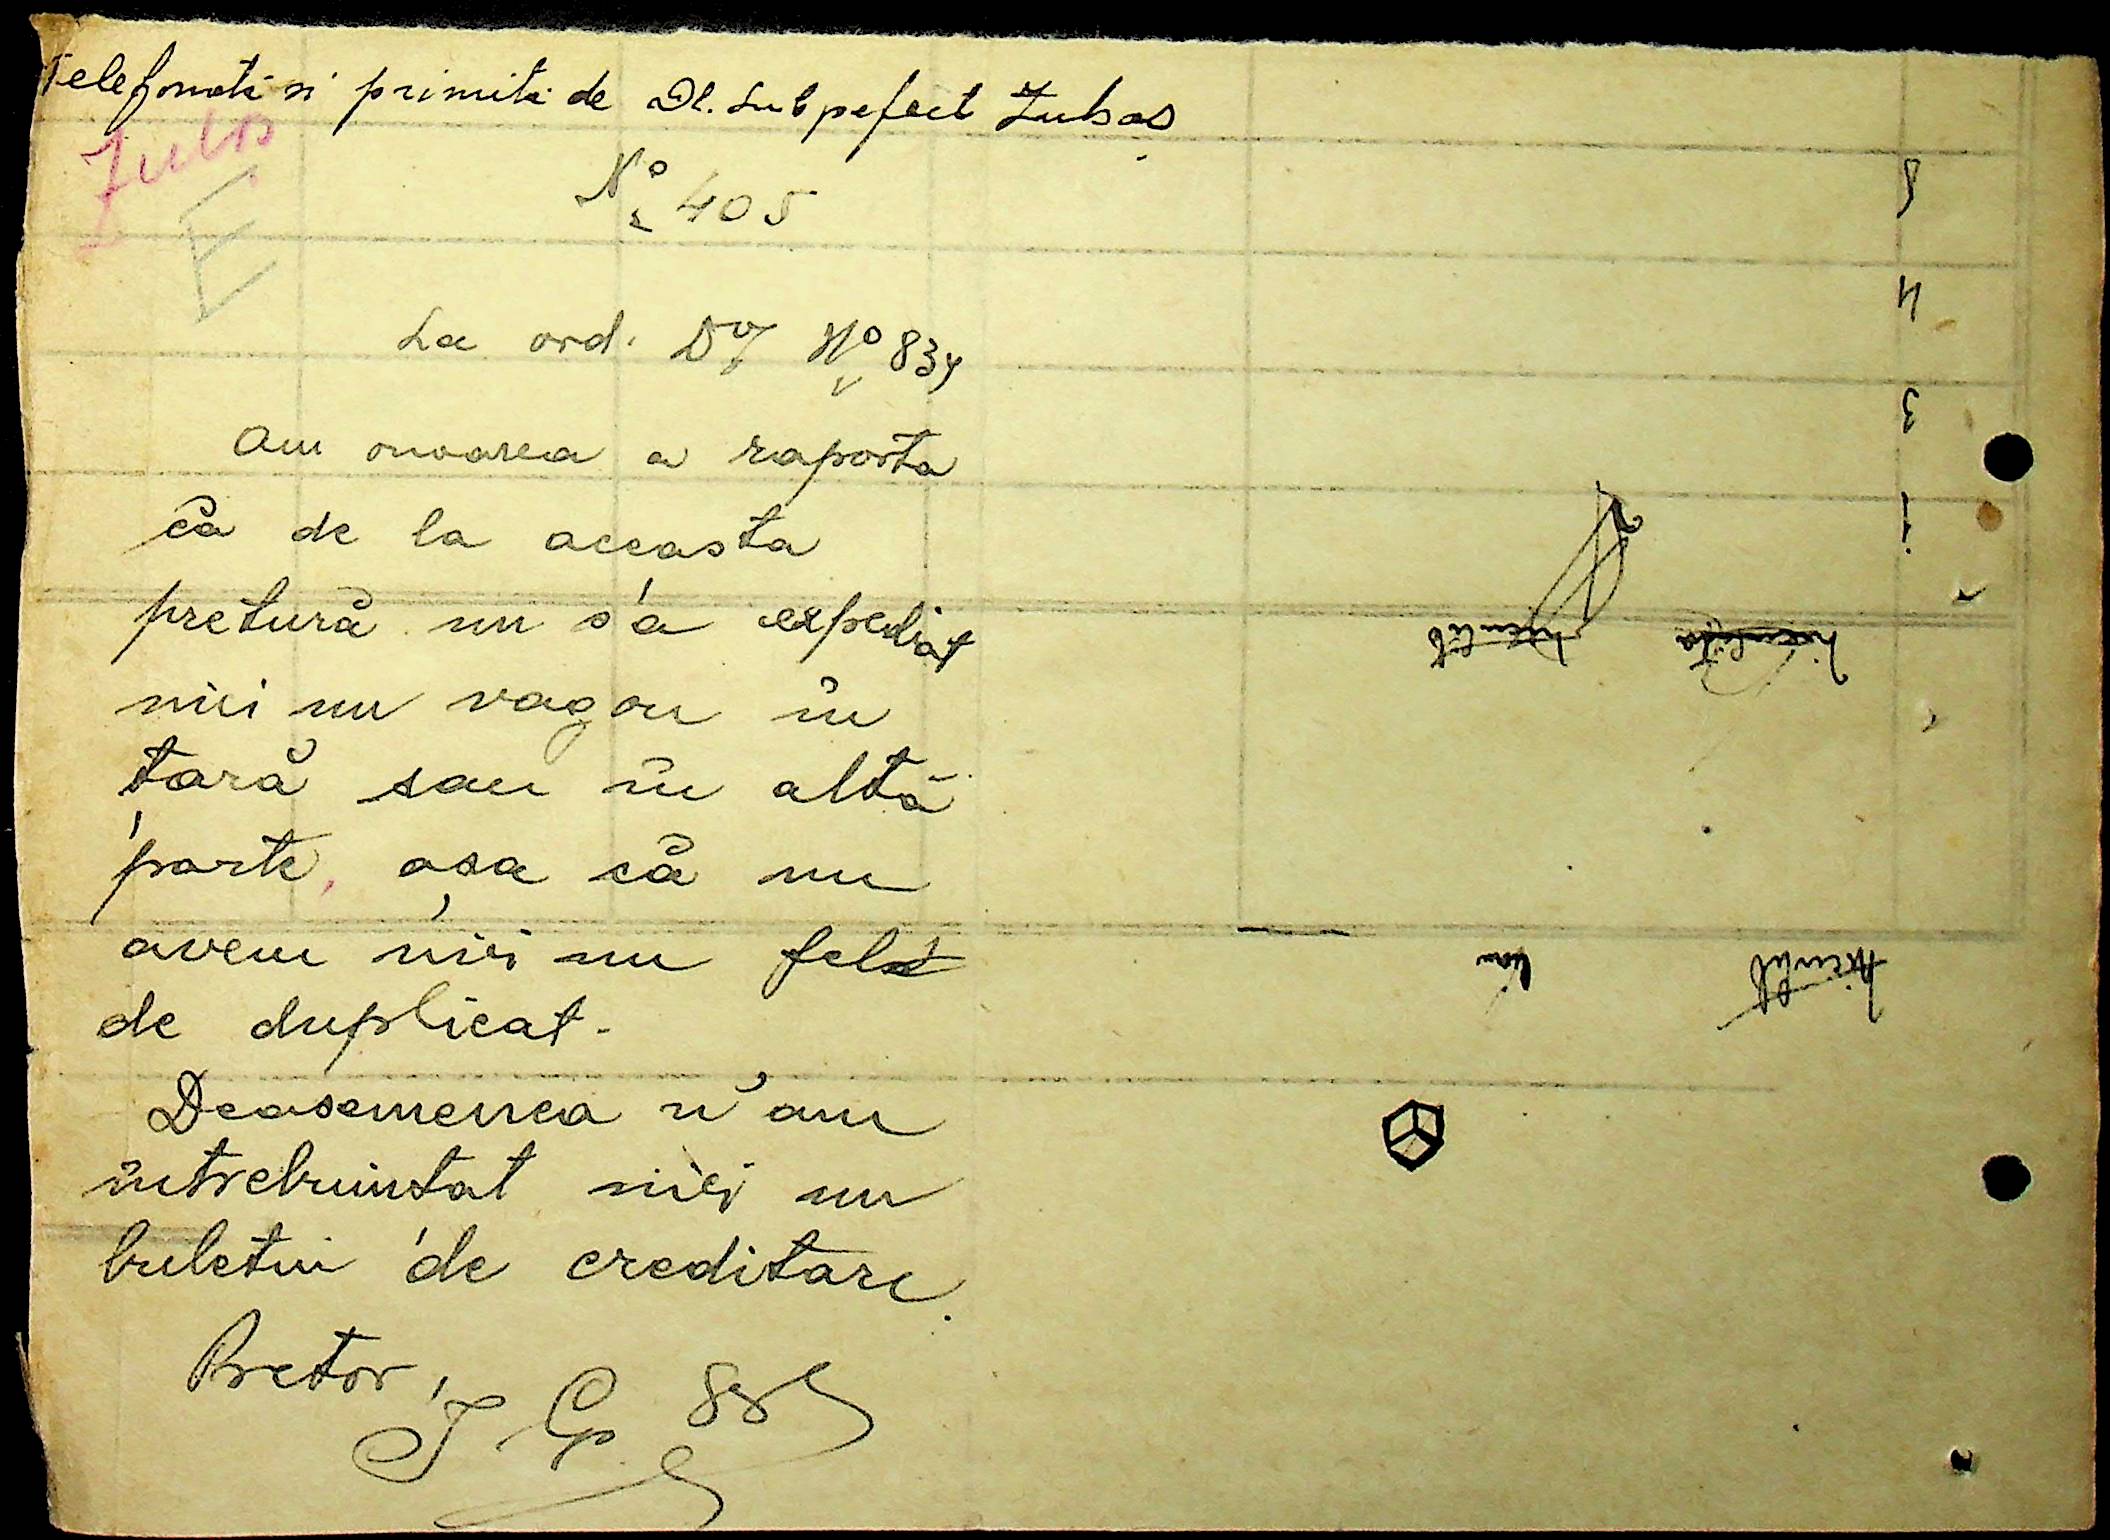 Telefonată și primită de Dl. Subpefect Zubas
Zubas
E
No 405
La ord. Dv No 834
Am onoarea a raporta
că de la aceasta
pretură nu s'a expediat
nici un vagon în
țară sau în altă
parte, așa că nu
avem nici un fel
de duplicat.
Deasemenea n'am
întrebuintat nici un
buletin de creditare.
Pretor,
5
4
3
1